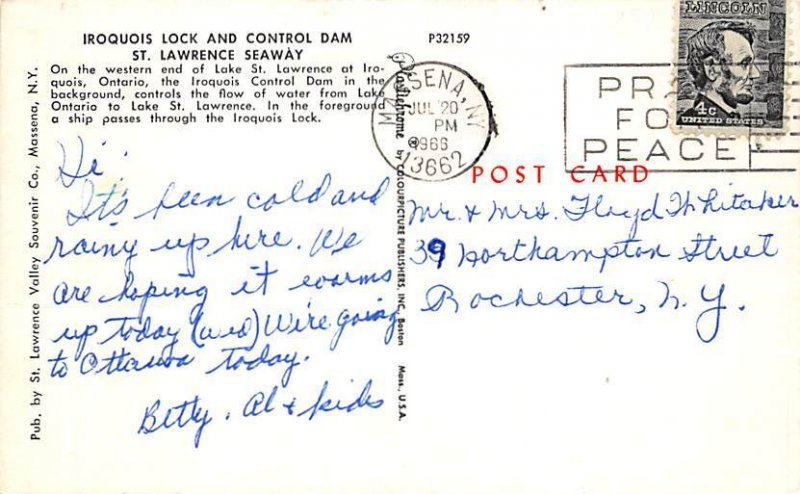 IROQUOIS LOCK AND CONTROL DAM
ST. LAWRENCE SEAWAY
On the western end of Lake St. Lawrence at Iro-
quois, Ontario, the Iroquois Control Dam in the
background, controls the flow of water from Lake
Ontario to Lake St. Lawrence. In the foreground
a ship passes through the Iroquois Lock.
P32159
Pub. by St. Lawrence Valley Souvenir Co., Massena, N.Y.
Plastichrome by COLOURPICTURE PUBLISHERS, INC., Boston Mass., U.S.A.
MASSENA, NY
JUL 20
PM
1966
13662
PRA
FO
PEACE
LINCOLN
4c
UNITED STATES
POST CARD
Hi
It's been cold and
rainy up here. We
are hoping it warms
up today (wed) We're going
to Ottawa today.
Betty, Al & kids
Mr. & Mrs. Floyd Whitaker
39 Northampton Street
Rochester, N.Y.